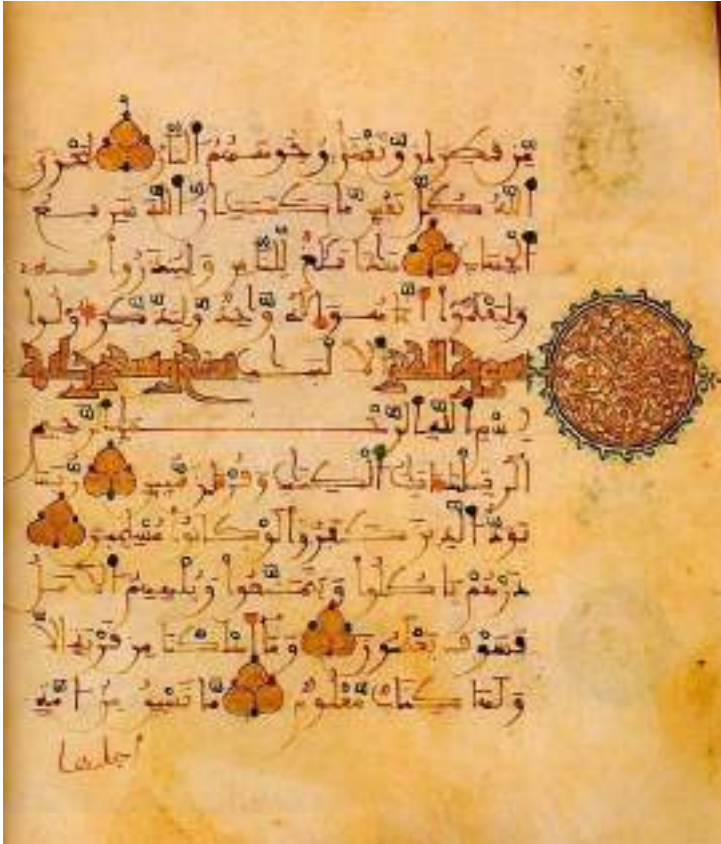 من قطران وتغشى وجوههم النار ليجزي
الله كل نفس ما كسبت إن الله سريع
الحساب هذا بلغ للناس ولينذروا به
وليعلموا أنما هو إله واحد وليذكر أولوا
سورة الحجر الالبب
بسم الله الرحمن الرحيم
الر تلك ايت الكتب وقران مبين ربما
يود الذين كفروا لو كانوا مسلمين
ذرهم ياكلوا ويتمتعوا ويلههم الامل
فسوف يعلمون وما أهلكنا من قرية الا
ولها كتاب معلوم ما تسبق من امة
أجلها